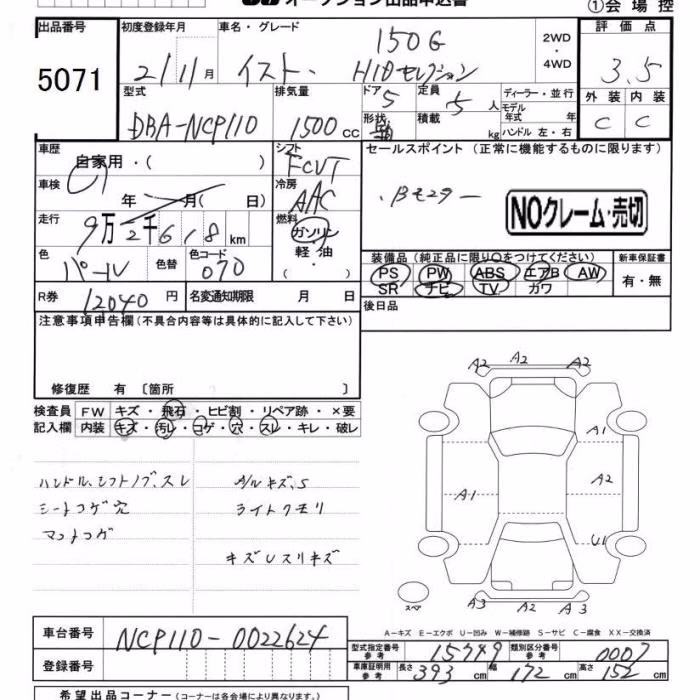 オークション出品申込書
①会場控
出品番号 5071
初度登録年月 2/11月
車名・グレード 150G
イスト・HIDセレクション
2WD・4WD
評価点 3.5
外装 C 内装 C
型式 DBA-NCP110
排気量 1500cc
ドア 5 定員 5人
形状 積載 kg
ディーラー・並行
モデル年式 年
ハンドル 左・右
車歴 自家用・( )
シフト FCVT
車検 年 月( 日)
冷房 AAC
走行 9万2千618km
燃料 ガソリン・軽油
色 パール 色替 色コード 070
R券 12040円 名変通知期限 月 日
セールスポイント (正常に機能するものに限ります)
・Bモニター
NOクレーム・売切
装備品(純正品に限り○をつけてください)
PS PW ABS エアB AW
SR ナビ TV カワ
新車保証書 有・無
後日品
注意事項申告欄(不具合内容等は具体的に記入して下さい)
修復歴 有〔箇所 〕
検査員記入欄 FW キズ・飛石・ヒビ割・リペア跡・×要
内装 キズ・汚レ・コゲ・穴・スレ・キレ・破レ
ハンドル、シフトノブ、スレ
シートコゲ穴
マットコゲ
A/Wキズ、S
ライトクモリ
キズUスリキズ
A2 A2 A2
A1
A1 A2
U1
スペア
A3 A2 A3
A-キズ E-エクボ U-凹み W-補修跡 S-サビ C-腐食 XX-交換済
車台番号 NCP110-0022624
登録番号
型式指定番号 参考 15749 類別区分番号 参考 0007
車庫証明用 参考 長さ 393cm 幅 172cm 高さ 152cm
希望出品コーナー(コーナーは各会場により異なります。)